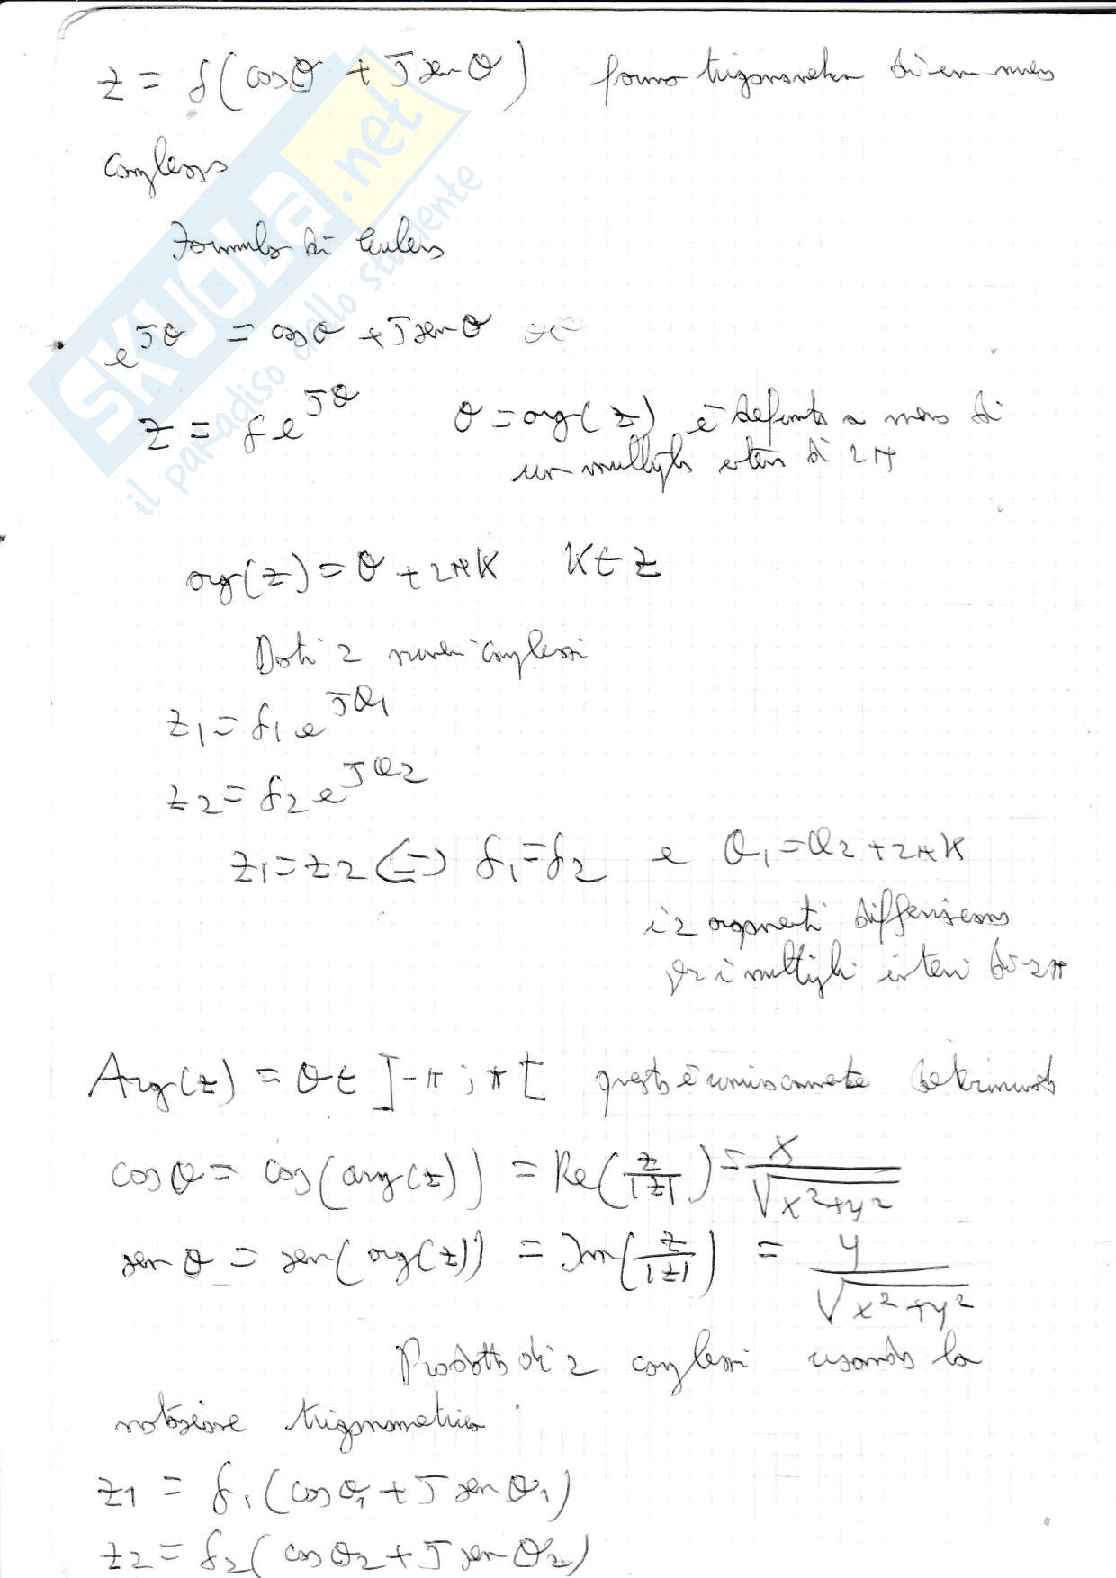 z = ρ(cosθ + J senθ) forma trigonometrica di un numero
complesso
Formula di Eulero
e^Jθ = cosθ + J senθ
z = ρe^Jθ θ = arg(z) è definito a meno di
un multiplo intero di 2π
arg(z) = θ + 2πK K∈Z
Dati 2 numeri complessi
z1 = ρ1 e^Jθ1
z2 = ρ2 e^Jθ2
z1 = z2 <=> ρ1 = ρ2 e θ1 = θ2 + 2πK
i 2 argomenti differiscono
per i multipli interi di 2π
Arg(z) = θ ∈ ]-π ; π[ questo è univocamente determinato
cosθ = cos(arg(z)) = Re(z/|z|) = x/√(x²+y²)
senθ = sen(arg(z)) = Im(z/|z|) = y/√(x²+y²)
Prodotto di 2 complessi usando la
notazione trigonometrica
z1 = ρ1(cosθ1 + J senθ1)
z2 = ρ2(cosθ2 + J senθ2)
SKUOLA.net
il paradiso dello studente